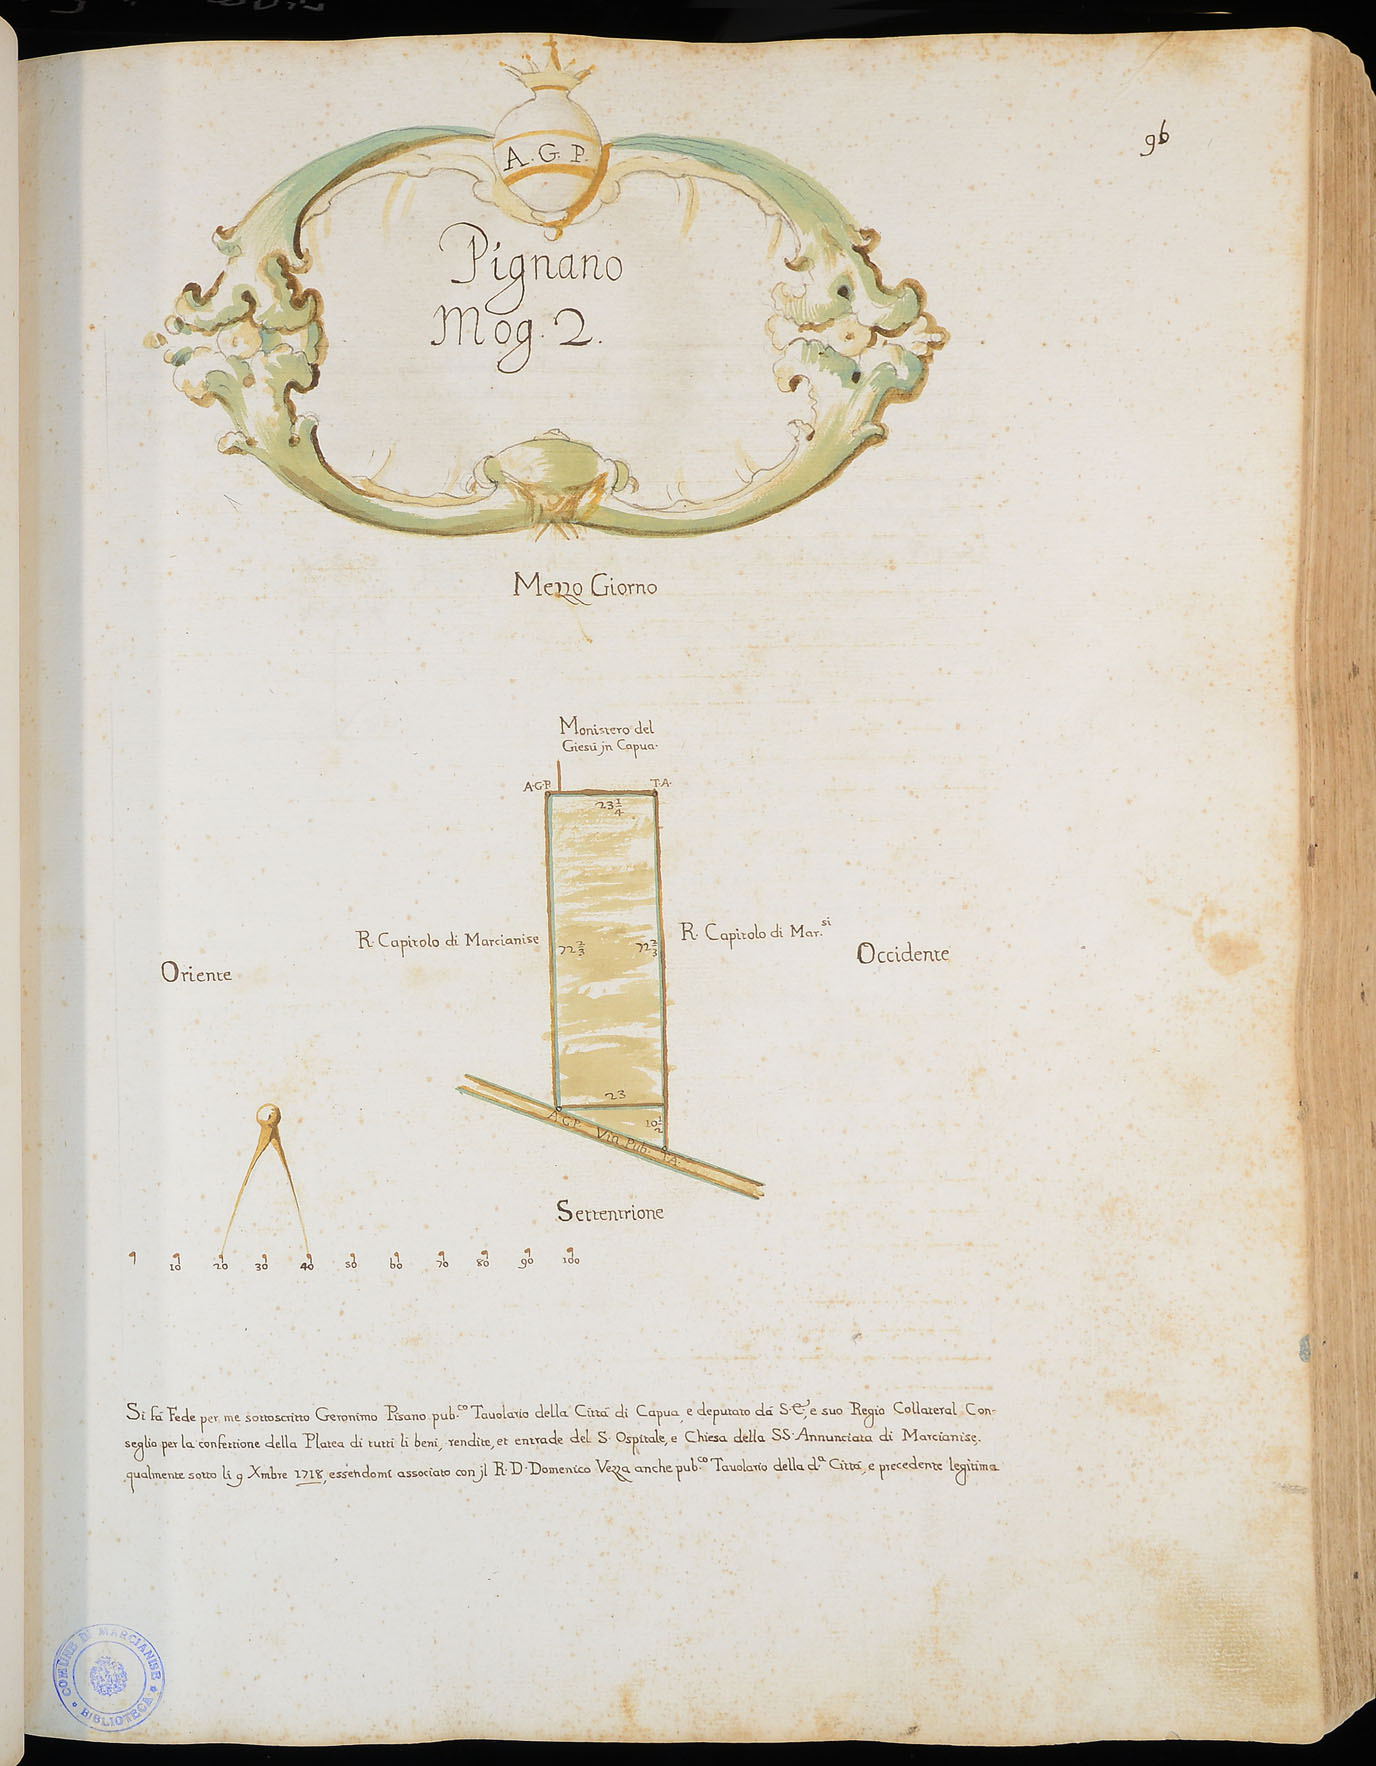 96
A. G. P.
Pignano
Mog. 2.
Mezzo Giorno
Monistero del
Giesù jn Capua.
A.G.P. T.A.
23 1/4
R. Capitolo di Marcianise
72 2/3 72 2/3
R. Capitolo di Mar.si
Oriente
Occidente
23
10 1/2
A.G.P. Via Pub. T.A.
Settentrione
10 20 30 40 50 60 70 80 90 100
Si fà Fede per me sottoscritto Geronimo Pisano pub.co Tauolario della Città di Capua, e deputato dà S.E., e suo Regio Collateral Con-
seglio per la confettione della Platea di tutti li beni, rendite, et entrade del S. Ospitale, e Chiesa della SS. Annunciata di Marcianise.
qualmente sotto li 9 Xmbre 1718, essendomi associato con jl R. D. Domenico Vezza anche pub.co Tauolario della d.a Città, e precedente legitima
COMUNE DI MARCIANISE
BIBLIOTECA